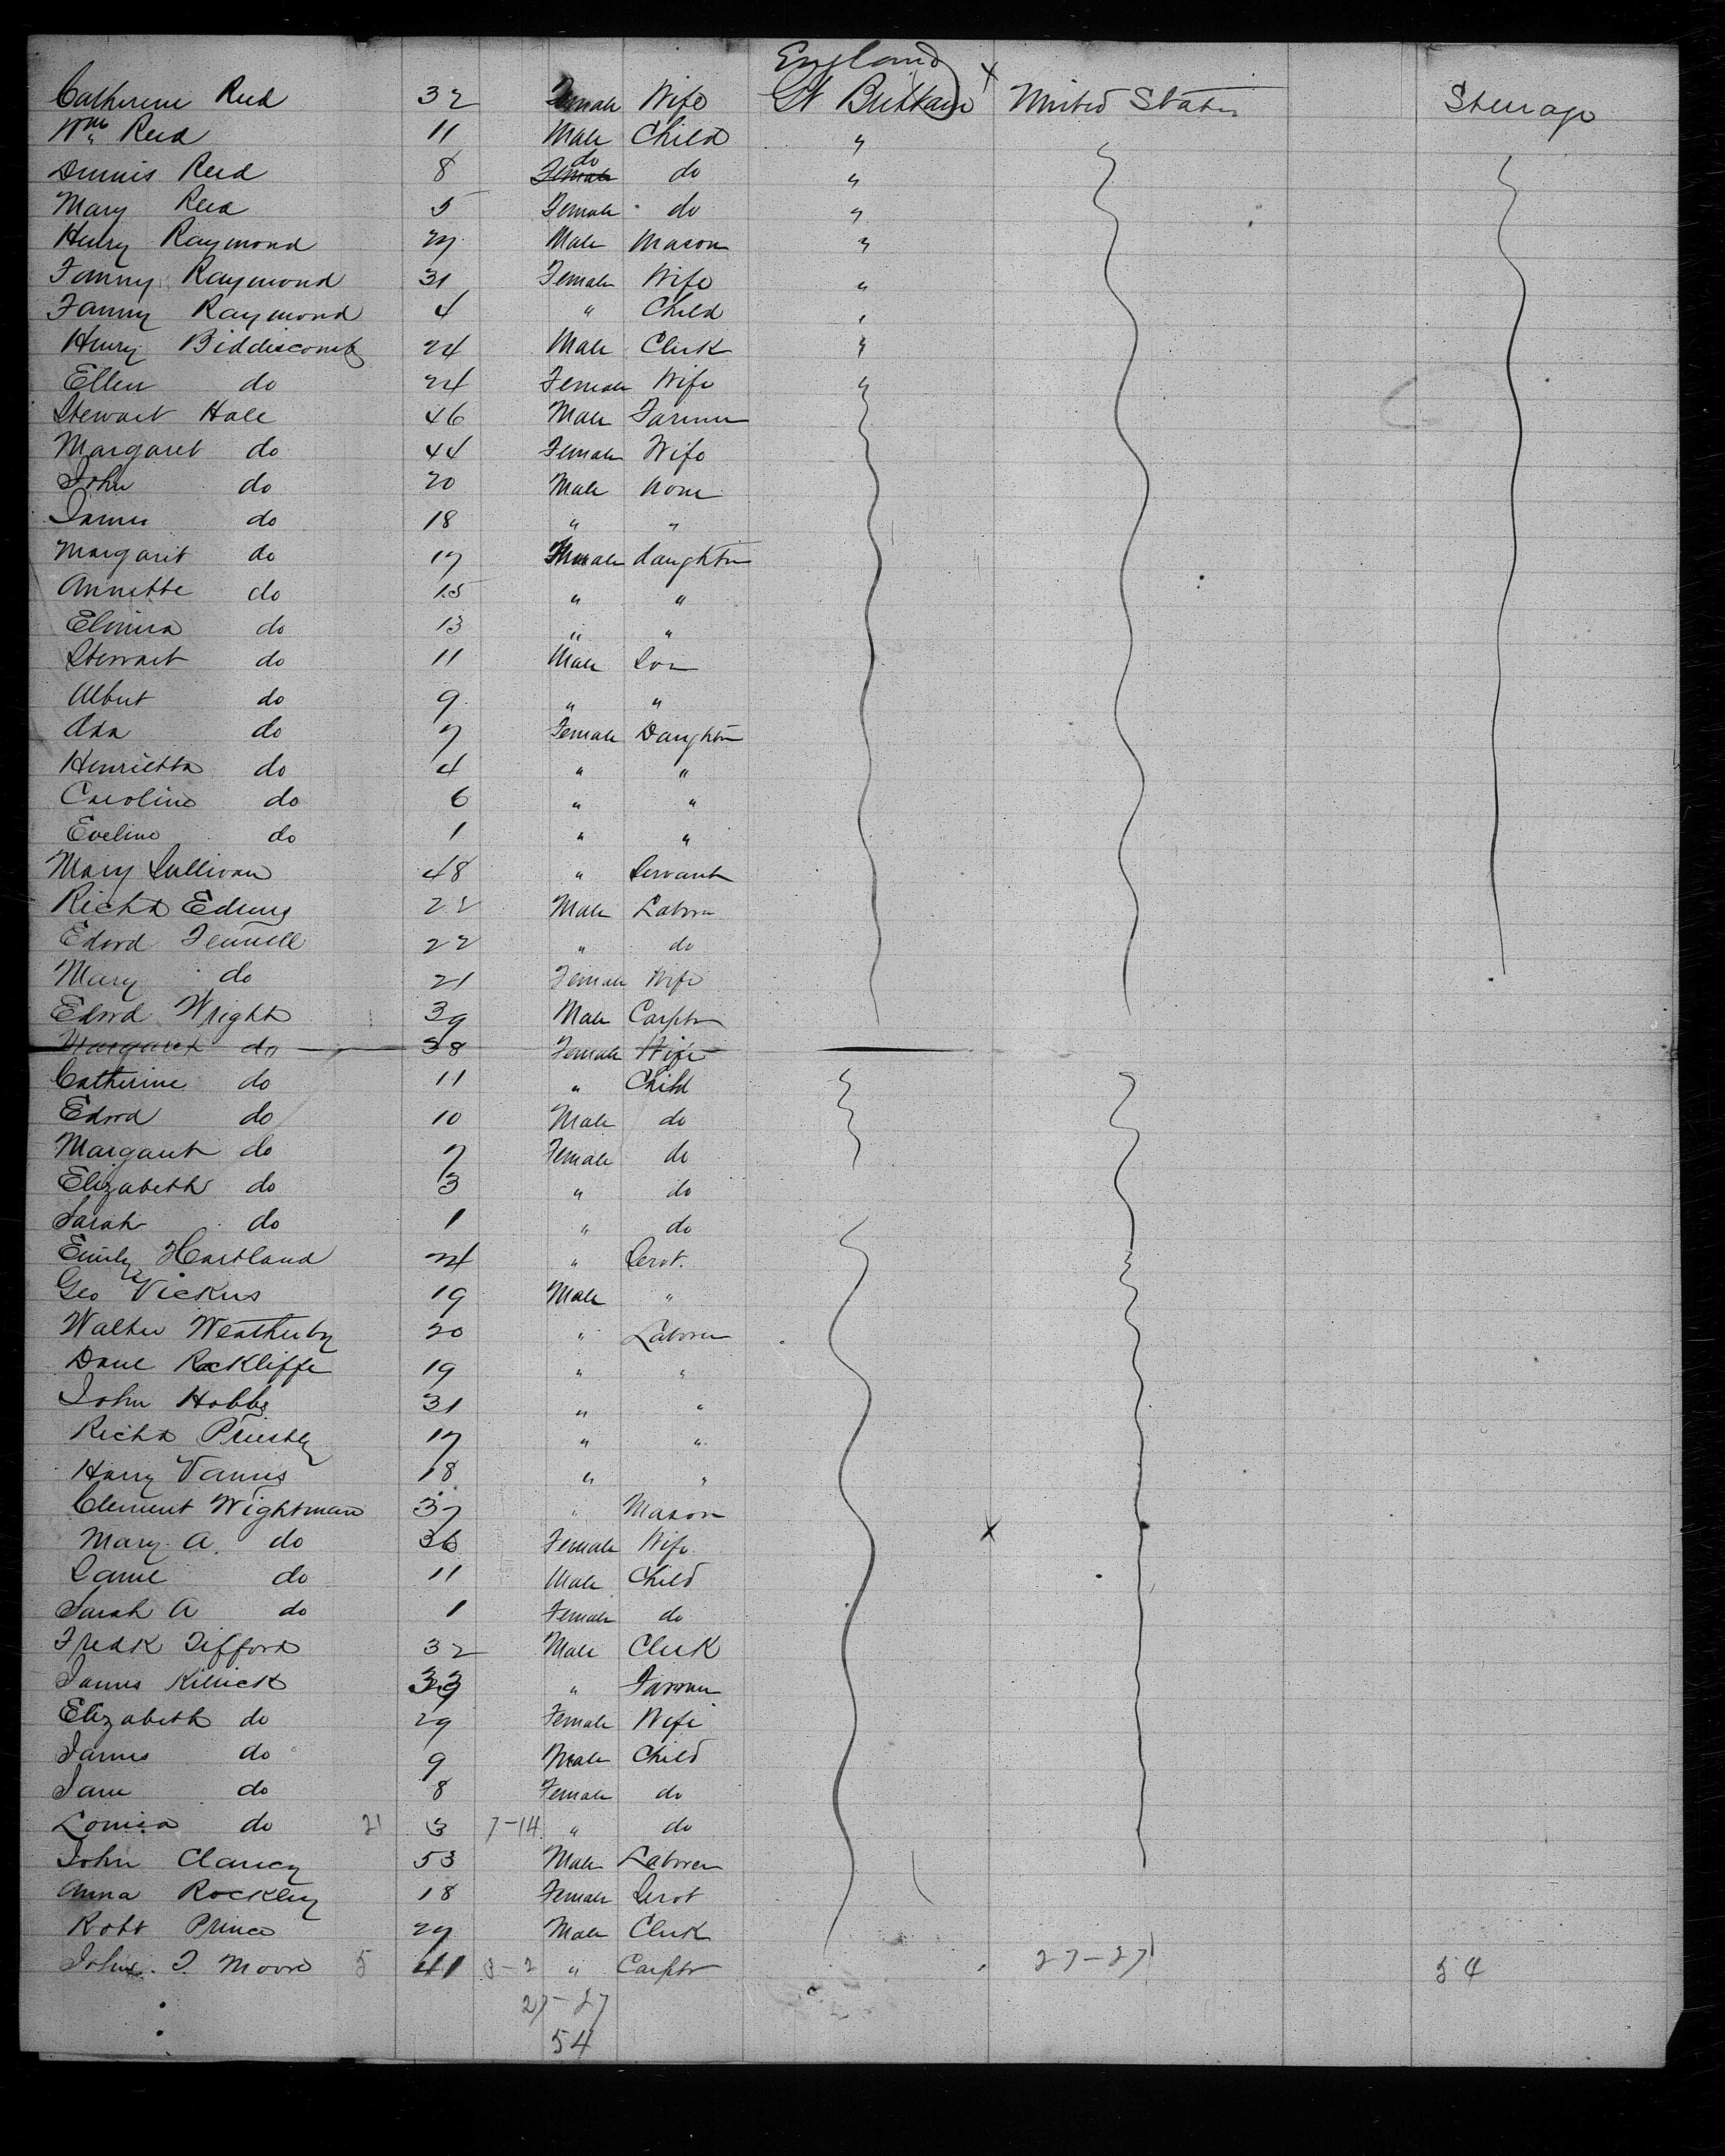 England
Catherine Reid 32 Female Wife Gt Brittain x United States Steerage
Wm Reid 11 Male Child "
Dennis Reid 8 Female do do "
Mary Reid 5 Female do "
Henry Raymond 27 Male Mason "
Fanny Raymond 31 Female Wife "
Fanny Raymond 4 " Child "
Henry Biddiscomb 24 Male Clerk "
Ellen do 24 Female Wife "
Stewart Hale 46 Male Farmer
Margaret do 44 Female Wife
John do 20 Male None
James do 18 " "
Margarit do 17 Female daughter
Annette do 15 " "
Elmira do 13 " "
Stewart do 11 Male Son
Albert do 9 " "
Ada do 7 Female Daughter
Henrietta do 4 " "
Caroline do 6 " "
Eveline do 1 " "
Mary Sullivan 48 " Servant
Richd 22 Male Labor
Edwd Fennell 22 " do
Mary do 21 Female Wife
Edwd Wright 39 Male Carptr
Margaret do 38 Female Wife
Catherine do 11 " Child
Edwd do 10 Male do
Margaret do 7 Female do
Elizabeth do 3 " do
Sarah do 1 " do
Emily Hartland 24 " Servt.
Geo Vickers 19 Male "
Walter Weatherby 20 " Laborer
Danl Rockliffe 19 " "
John Hobbs 31 " "
Richd Priestly 17 " "
Harry 18 " "
Clement Wightman 37 " Mason
Mary A. do 36 Female Wife x
do 11 Male Child
Sarah A do 1 Female do
Fredk Tifford 32 Male Clerk
James Killick 33 " Farmer
Elizabeth do 29 Female Wife
James do 9 Male Child
Jane do 8 Female do
Louisa do 21 3 7-14 " do
John Clancy 53 Male Laborer
Anna Rockley 18 Female Servt
Robt Prince 27 Male Clerk
John T. Moore 5 41 3-2 " Carptr 27-27 54
27-27
54